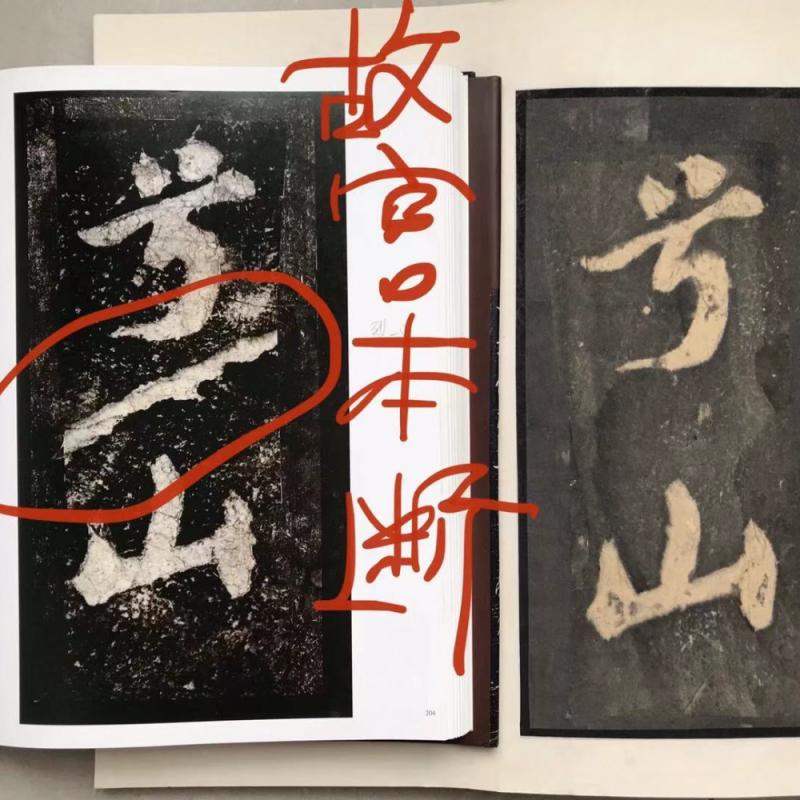 故宫本断
兮山
兮山
204